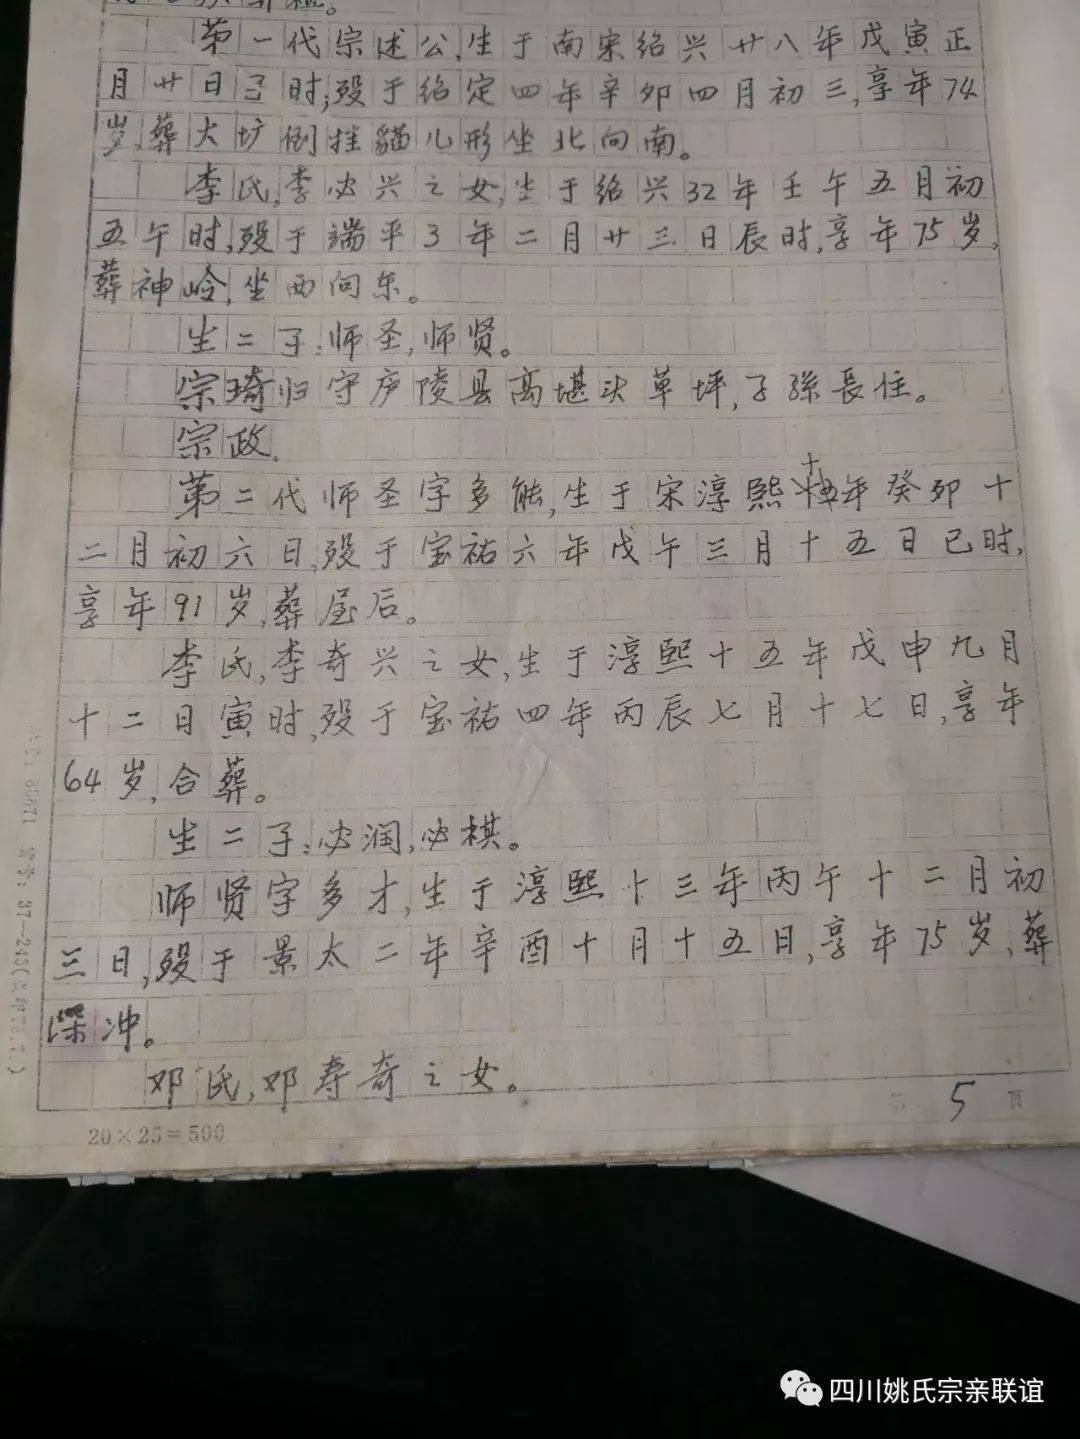 第一代宗述公,生于南宋绍兴廿八年戊寅正
月廿日子时,殁于绍定四年辛卯四月初三,享年74
岁,葬大圹倒挂貓儿形坐北向南。
李氏,李必兴之女,生于绍兴32年壬午五月初
五午时,殁于端平3年二月廿三日辰时,享年75岁,
葬神岭,坐西向东。
生二子:师圣,师贤。
宗琦归守庐陵县高堪头草坪,子孫長住。
宗政.
第二代师圣字多能,生于宋淳熙十年癸卯十
二月初六日,殁于宝祐六年戊午三月十五日巳时,
享年91岁,葬屋后。
李氏,李奇兴之女,生于淳熙十五年戊申九月
十二日寅时,殁于宝祐四年丙辰七月十七日,享年
64岁,合葬。
生二子:必润,必棋。
师贤字多才,生于淳熙十三年丙午十二月初
三日,殁于景太二年辛酉十月十五日,享年75岁,葬
深冲。
邓氏,邓寿奇之女。
第 5 页
20×25=500
四川姚氏宗亲联谊